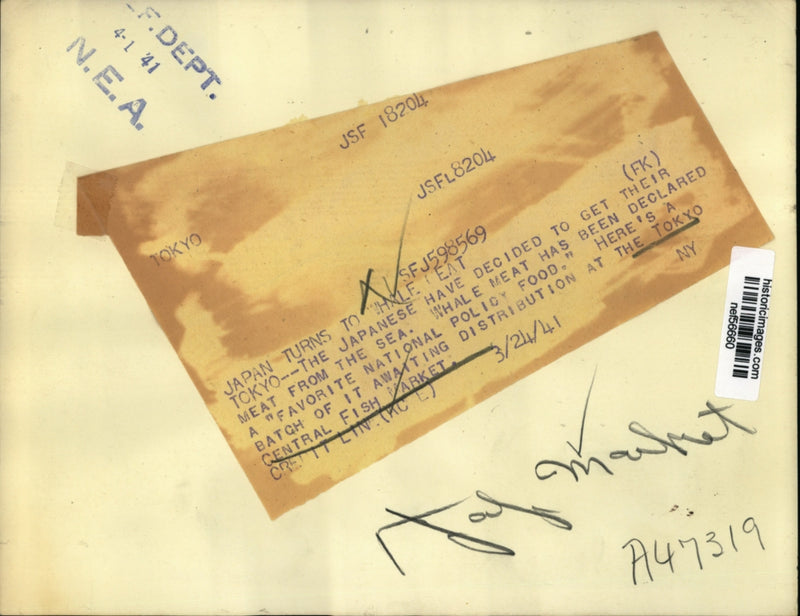 F. DEPT.
4-1 '41
N.E.A.
JSF 18204
JSFL8204
TOKYO
(FK)
SFJ598569
JAPAN TURNS TO WHALE MEAT
TOKYO--THE JAPANESE HAVE DECIDED TO GET THEIR
MEAT FROM THE SEA. WHALE MEAT HAS BEEN DECLARED
A "FAVORITE NATIONAL POLICY FOOD." HERE'S A
BATCH OF IT AWAITING DISTRIBUTION AT THE TOKYO
CENTRAL FISH MARKET.
NY
CREDIT LINE (ACME)
3/24/41
historicimages.com
nef56660
Market
A47319